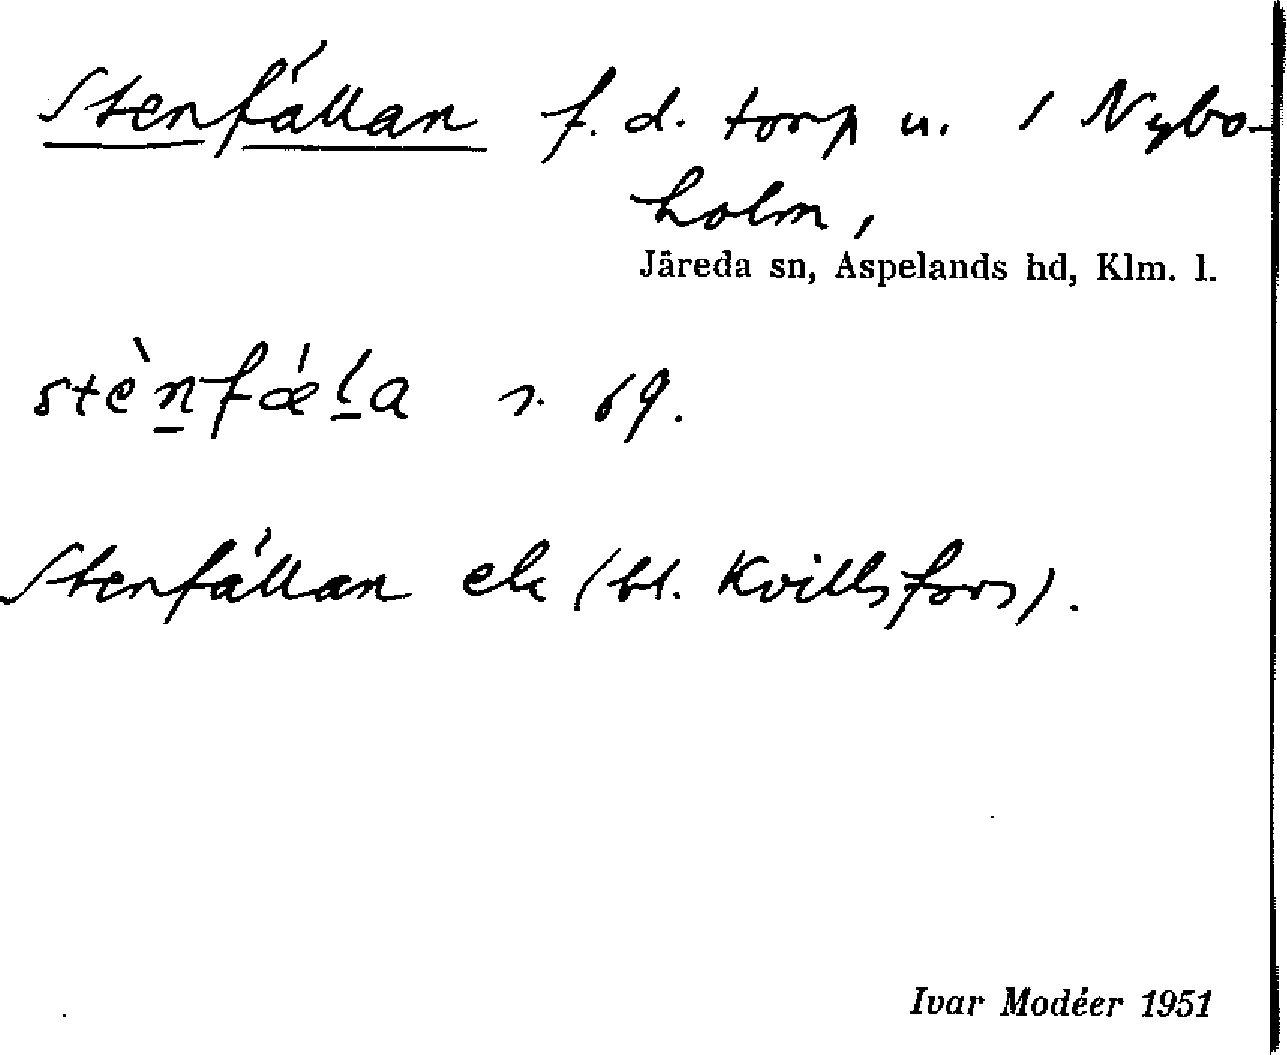 Stenfällan f. d. torp u. 1 Nybo-
holm,
Järeda sn, Aspelands hd, Klm. l.
stènfǽla s. 69.
Stenfällan ek (bl. Kvillsfors).
Ivar Modéer 1951